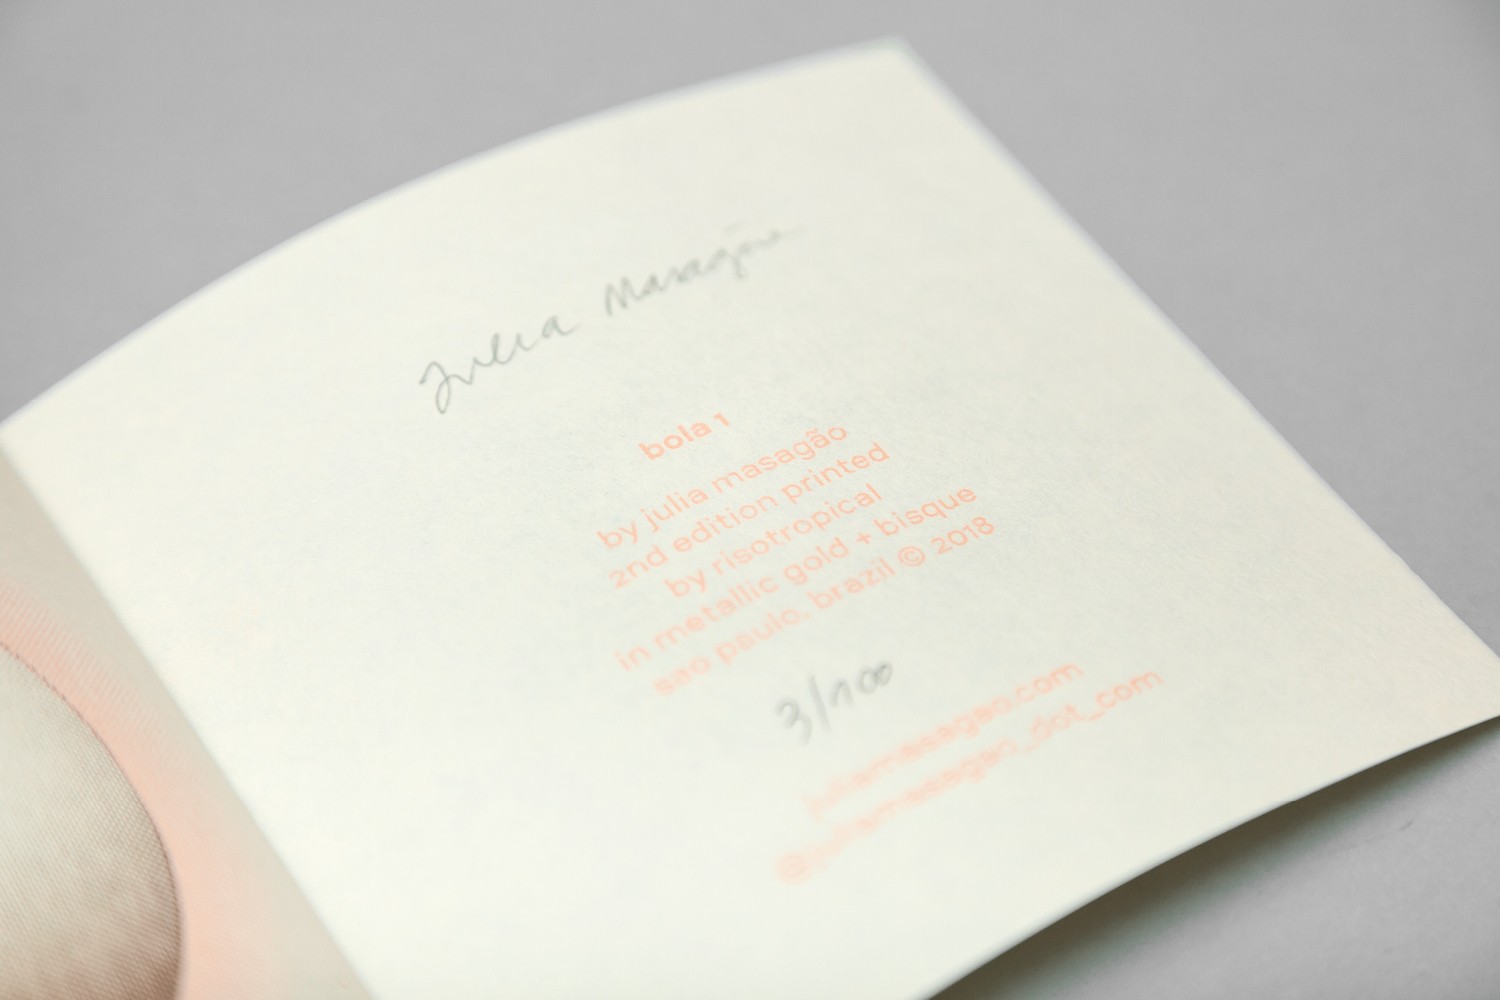 Julia Masagão
bola 1
by julia masagão
2nd edition printed
by risotropical
in metallic gold + bisque
sao paulo, brazil © 2018
3/100
juliamasagao.com
@juliamasagao_dot_com